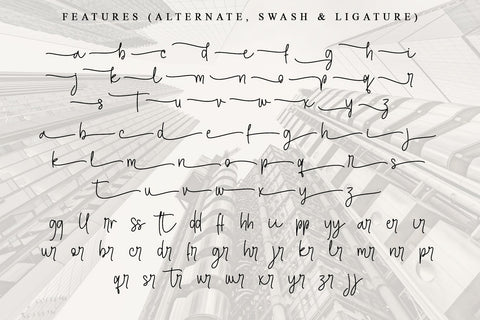 FEATURES (ALTERNATE, SWASH & LIGATURE)
a b c d e f g h i
j k l m n o p q r
s t u v w x y z
a b c d e f g h i j
k l m n o p q r s
t u v w x y z
gg ll rr ss tt dd ff hh ii pp yy ar er ir
ur or br cr dr fr gr hr jr kr lr mr nr pr
qr sr tr ur wr xr yr zr jj